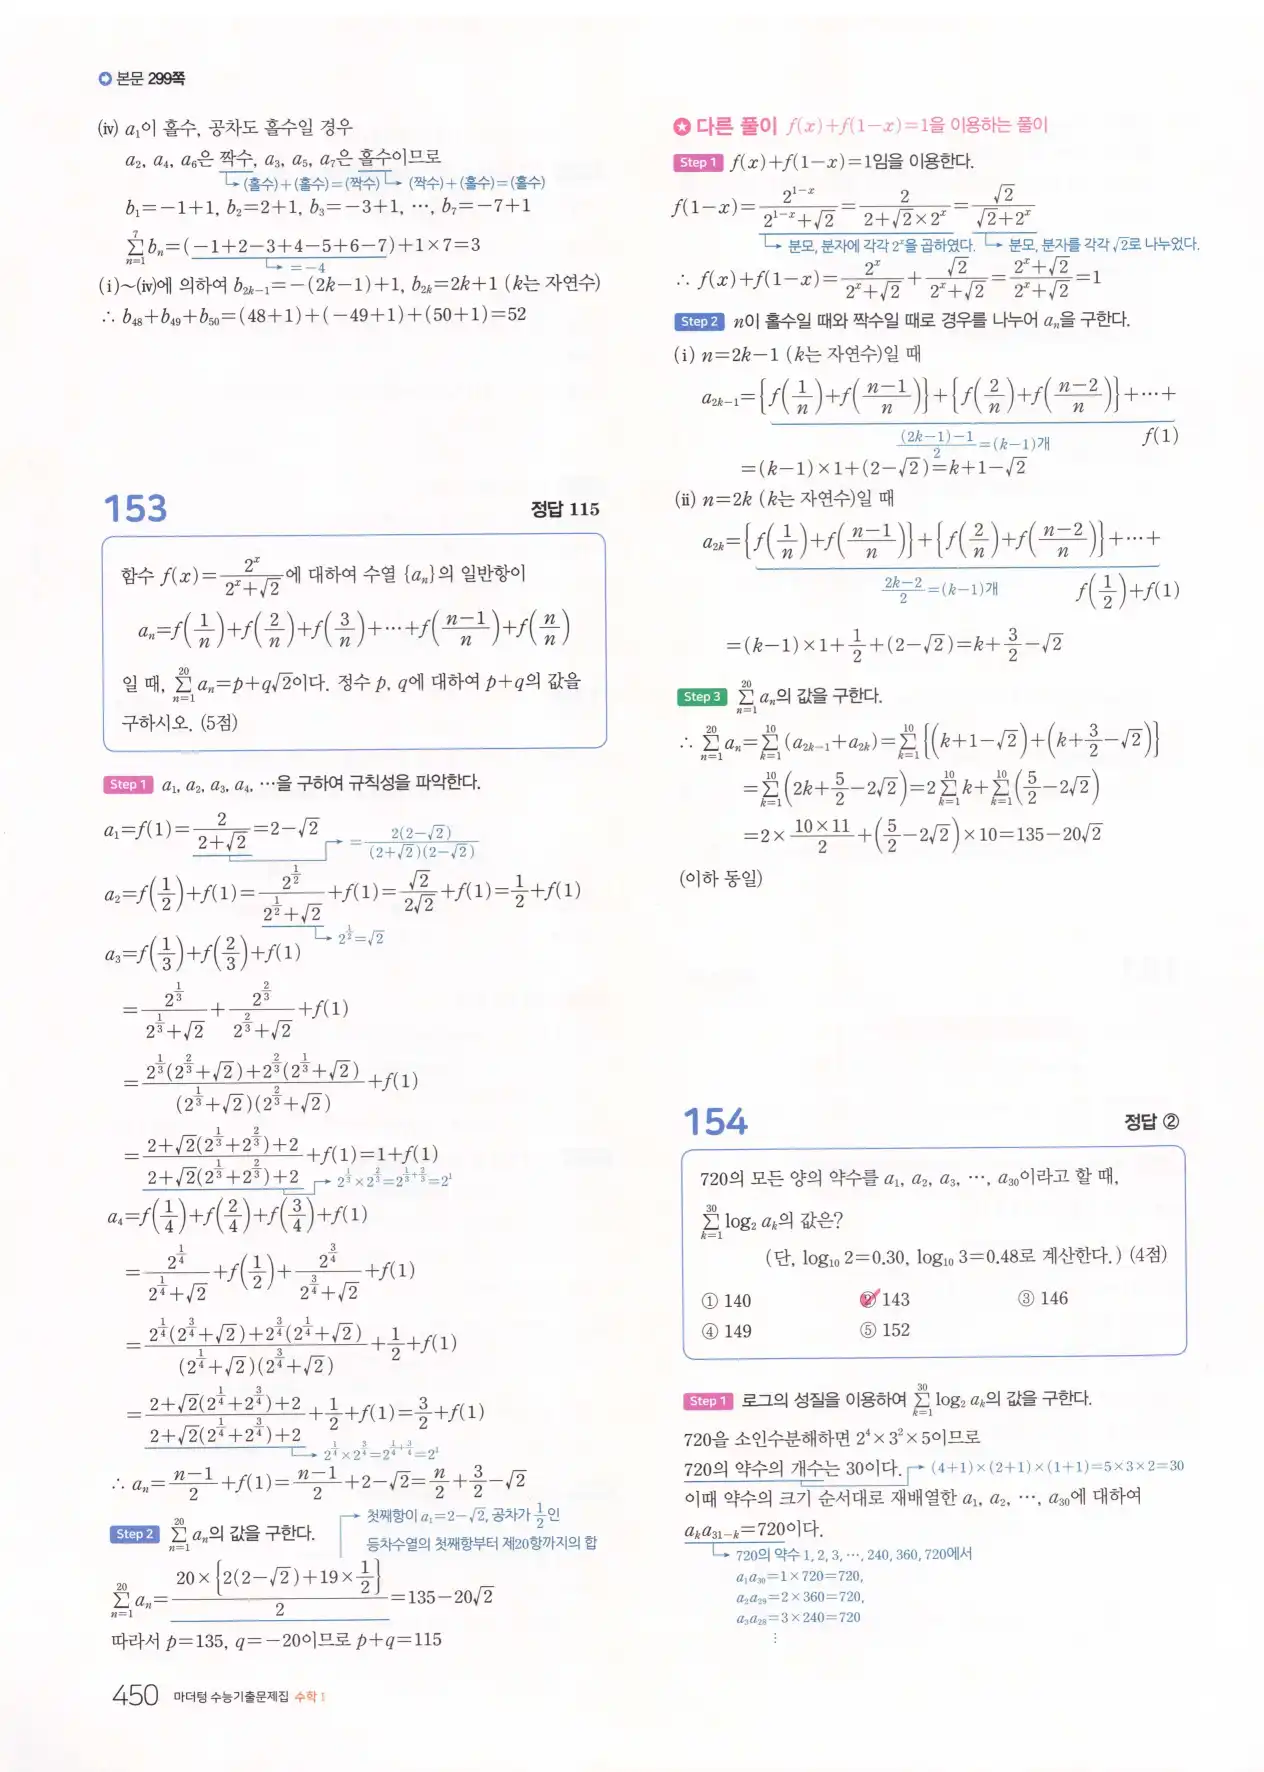 본문 299쪽
(ⅳ) a₁이 홀수, 공차도 홀수일 경우
a₂, a₄, a₆은 짝수, a₃, a₅, a₇은 홀수이므로
(홀수)+(홀수)=(짝수) (짝수)+(홀수)=(홀수)
b₁=-1+1, b₂=2+1, b₃=-3+1, ⋯, b₇=-7+1
∑_{n=1}^{7} bₙ=(-1+2-3+4-5+6-7)+1×7=3
=-4
(ⅰ)~(ⅳ)에 의하여 b_{2k-1}=-(2k-1)+1, b_{2k}=2k+1 (k는 자연수)
∴ b₄₈+b₄₉+b₅₀=(48+1)+(-49+1)+(50+1)=52
153 정답 115
함수 f(x)=2^x/(2^x+√2)에 대하여 수열 {aₙ}의 일반항이
aₙ=f(1/n)+f(2/n)+f(3/n)+⋯+f((n-1)/n)+f(n/n)
일 때, ∑_{n=1}^{20} aₙ=p+q√2이다. 정수 p, q에 대하여 p+q의 값을
구하시오. (5점)
Step 1 a₁, a₂, a₃, a₄, ⋯을 구하여 규칙성을 파악한다.
a₁=f(1)=2/(2+√2)=2-√2
=2(2-√2)/((2+√2)(2-√2))
a₂=f(1/2)+f(1)=2^{1/2}/(2^{1/2}+√2)+f(1)=√2/(2√2)+f(1)=1/2+f(1)
2^{1/2}=√2
a₃=f(1/3)+f(2/3)+f(1)
=2^{1/3}/(2^{1/3}+√2)+2^{2/3}/(2^{2/3}+√2)+f(1)
={2^{1/3}(2^{2/3}+√2)+2^{2/3}(2^{1/3}+√2)}/{(2^{1/3}+√2)(2^{2/3}+√2)}+f(1)
={2+√2(2^{1/3}+2^{2/3})+2}/{2+√2(2^{1/3}+2^{2/3})+2}+f(1)=1+f(1)
2^{1/3}×2^{2/3}=2^{1/3+2/3}=2¹
a₄=f(1/4)+f(2/4)+f(3/4)+f(1)
=2^{1/4}/(2^{1/4}+√2)+f(1/2)+2^{3/4}/(2^{3/4}+√2)+f(1)
={2^{1/4}(2^{3/4}+√2)+2^{3/4}(2^{1/4}+√2)}/{(2^{1/4}+√2)(2^{3/4}+√2)}+1/2+f(1)
={2+√2(2^{1/4}+2^{3/4})+2}/{2+√2(2^{1/4}+2^{3/4})+2}+1/2+f(1)=3/2+f(1)
2^{1/4}×2^{3/4}=2^{1/4+3/4}=2¹
∴ aₙ=(n-1)/2+f(1)=(n-1)/2+2-√2=n/2+3/2-√2
Step 2 ∑_{n=1}^{20} aₙ의 값을 구한다.
첫째항이 a₁=2-√2, 공차가 1/2인
등차수열의 첫째항부터 제20항까지의 합
∑_{n=1}^{20} aₙ=20×{2(2-√2)+19×1/2}/2=135-20√2
따라서 p=135, q=-20이므로 p+q=115
다른 풀이 f(x)+f(1-x)=1을 이용하는 풀이
Step 1 f(x)+f(1-x)=1임을 이용한다.
f(1-x)=2^{1-x}/(2^{1-x}+√2)=2/(2+√2×2^x)=√2/(√2+2^x)
분모, 분자에 각각 2^x을 곱하였다. 분모, 분자를 각각 √2로 나누었다.
∴ f(x)+f(1-x)=2^x/(2^x+√2)+√2/(2^x+√2)=(2^x+√2)/(2^x+√2)=1
Step 2 n이 홀수일 때와 짝수일 때로 경우를 나누어 aₙ을 구한다.
(ⅰ) n=2k-1 (k는 자연수)일 때
a_{2k-1}={f(1/n)+f((n-1)/n)}+{f(2/n)+f((n-2)/n)}+⋯+
((2k-1)-1)/2=(k-1)개 f(1)
=(k-1)×1+(2-√2)=k+1-√2
(ⅱ) n=2k (k는 자연수)일 때
a_{2k}={f(1/n)+f((n-1)/n)}+{f(2/n)+f((n-2)/n)}+⋯+
(2k-2)/2=(k-1)개 f(1/2)+f(1)
=(k-1)×1+1/2+(2-√2)=k+3/2-√2
Step 3 ∑_{n=1}^{20} aₙ의 값을 구한다.
∴ ∑_{n=1}^{20} aₙ=∑_{k=1}^{10} (a_{2k-1}+a_{2k})=∑_{k=1}^{10} {(k+1-√2)+(k+3/2-√2)}
=∑_{k=1}^{10} (2k+5/2-2√2)=2∑_{k=1}^{10} k+∑_{k=1}^{10} (5/2-2√2)
=2×(10×11)/2+(5/2-2√2)×10=135-20√2
(이하 동일)
154 정답 ②
720의 모든 양의 약수를 a₁, a₂, a₃, ⋯, a₃₀이라고 할 때,
∑_{k=1}^{30} log₂ aₖ의 값은?
(단, log₁₀ 2=0.30, log₁₀ 3=0.48로 계산한다.) (4점)
① 140 ② 143 ③ 146
④ 149 ⑤ 152
Step 1 로그의 성질을 이용하여 ∑_{k=1}^{30} log₂ aₖ의 값을 구한다.
720을 소인수분해하면 2⁴×3²×5이므로
720의 약수의 개수는 30이다. (4+1)×(2+1)×(1+1)=5×3×2=30
이때 약수의 크기 순서대로 재배열한 a₁, a₂, ⋯, a₃₀에 대하여
aₖa_{31-k}=720이다.
720의 약수 1, 2, 3, ⋯, 240, 360, 720에서
a₁a₃₀=1×720=720,
a₂a₂₉=2×360=720,
a₃a₂₈=3×240=720
⋮
450 마더텅 수능기출문제집 수학 Ⅰ